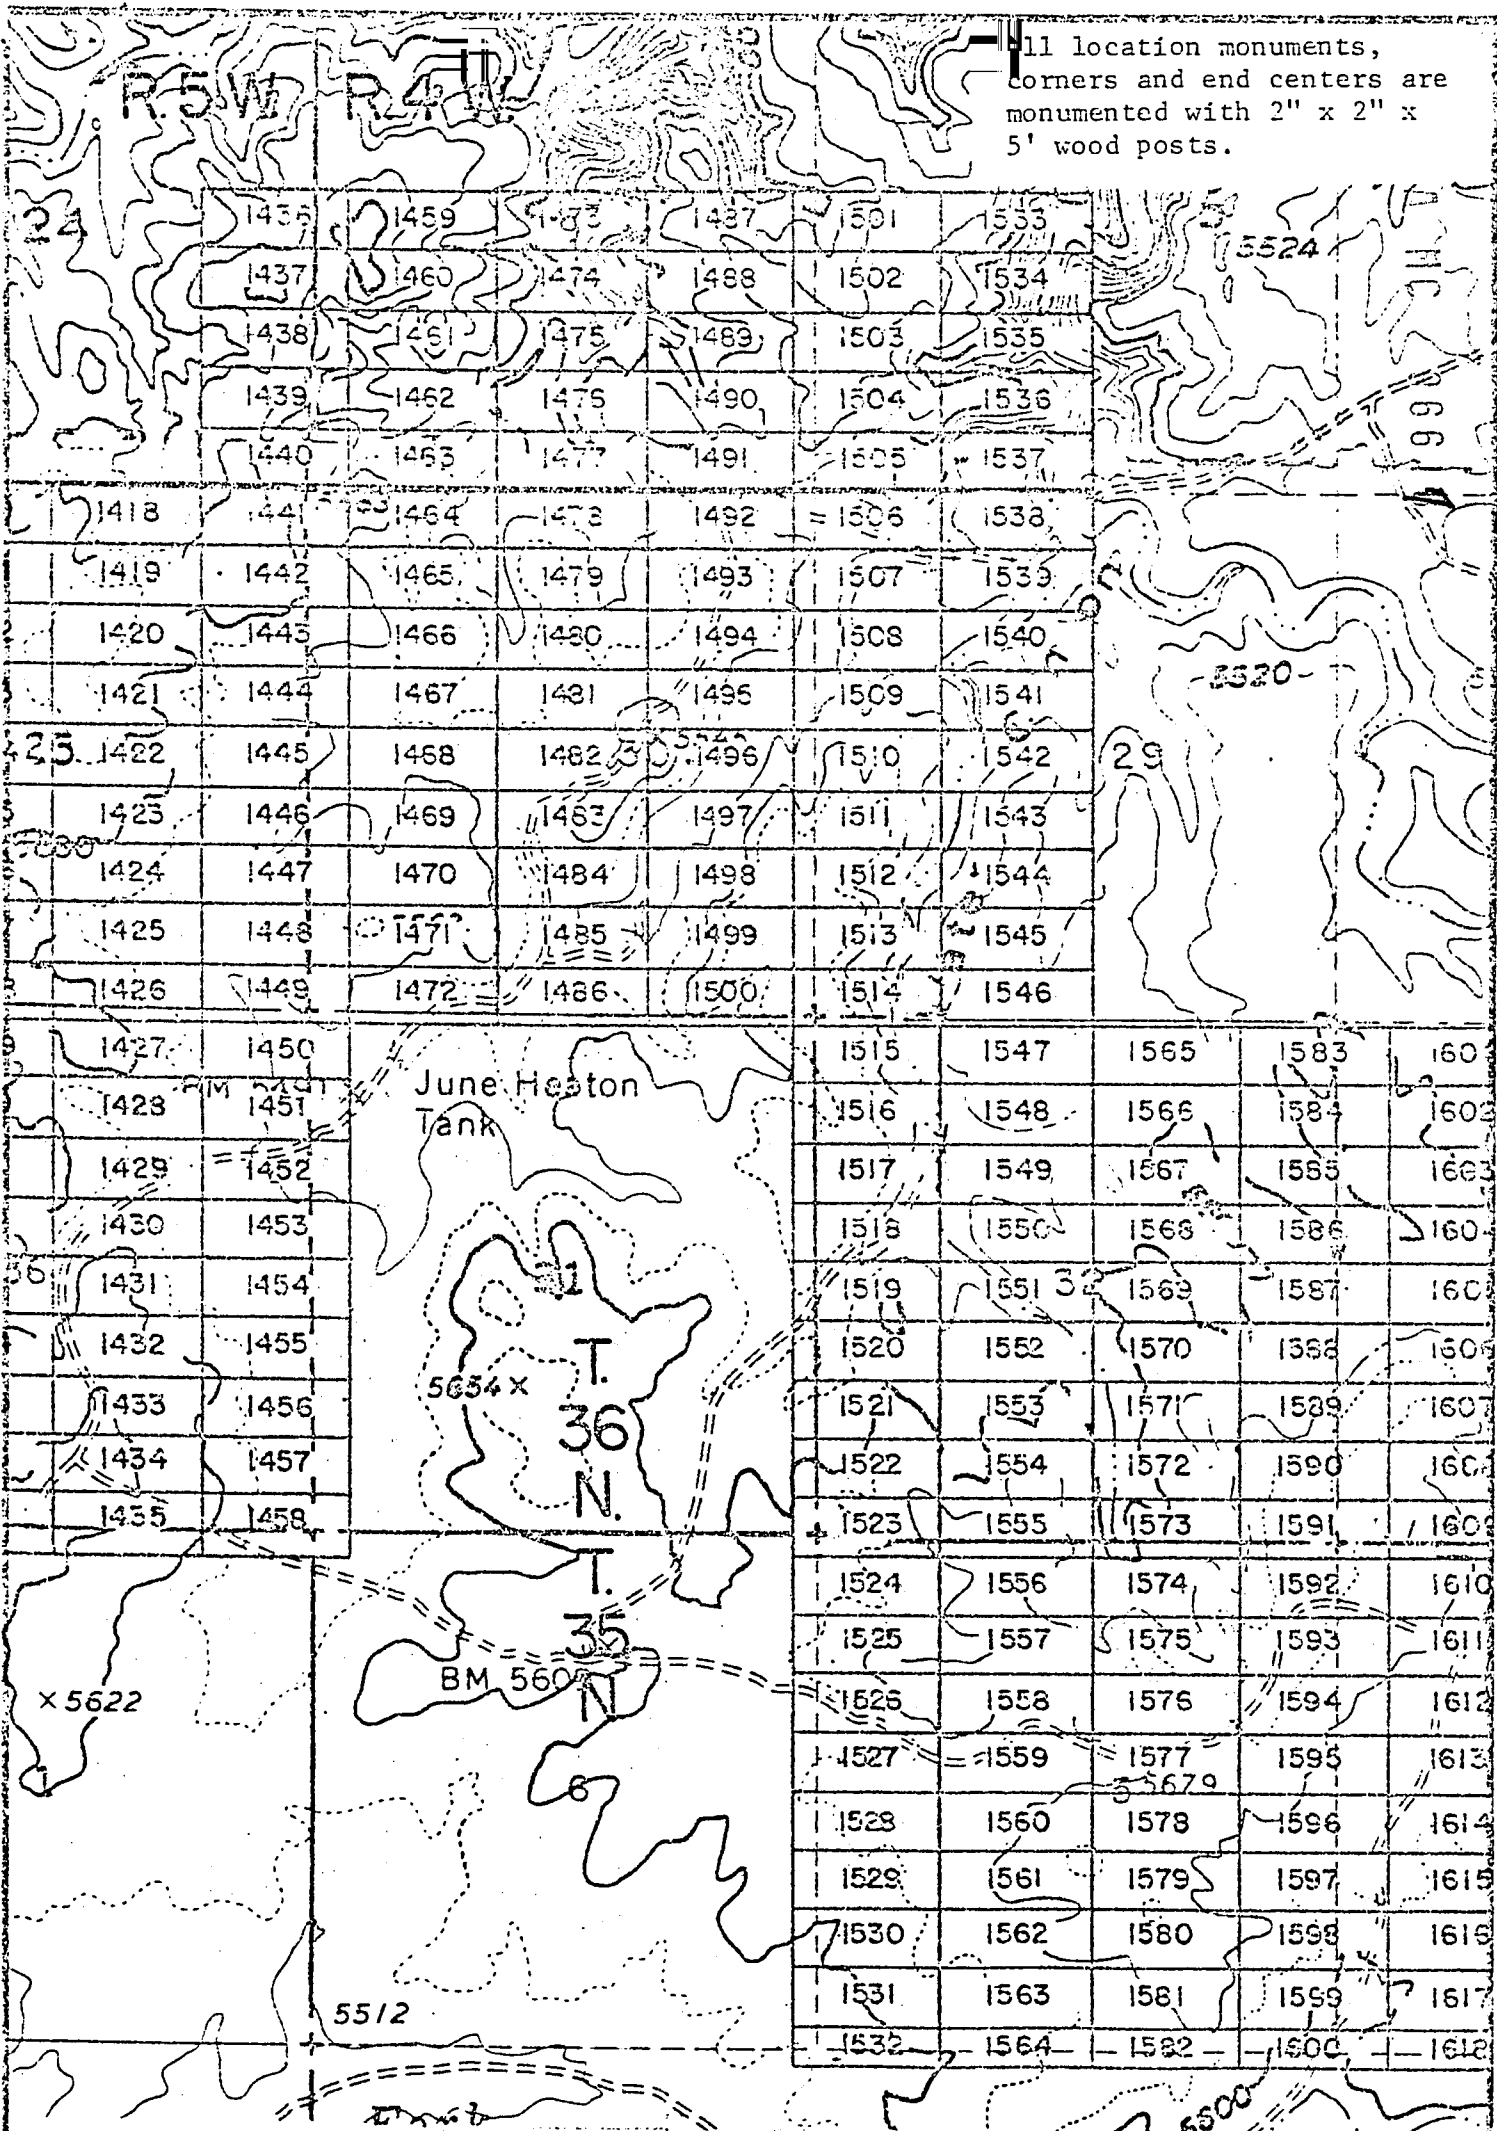 11 location monuments,
corners and end centers are
monumented with 2" x 2" x
5' wood posts.
R.5W. R.4W.
24
1436 1459 1487 1501 1533
5524
1437 1460 1474 1488 1502 1534
1438 1461 1475 1489 1503 1535
1439 1462 1476 1490 1504 1536
1440 1463 1477 1491 1505 1537
1418 1464 1478 1492 1506 1538
1419 1442 1465 1479 1493 1507 1539
1420 1443 1466 1480 1494 1508 1540
5520
1421 1444 1467 1481 1495 1509 1541
1422 1445 1468 1482 30 1496 1510 1542 29
1423 1446 1469 1483 1497 1511 1543
1424 1447 1470 1484 1498 1512 1544
1425 1448 1471 1485 1499 1513 1545
1426 1449 1472 1486 1500 1514 1546
1427 1450 1515 1547 1565 1583
BM June Heaton
Tank
1428 1451 1516 1548 1566 1584 1602
1429 1452 1517 1549 1567 1585 1603
1430 1453 1518 1550 1568 1586
31
1431 1454 1519 1551 32 1569 1587
1432 1455 T. 1520 1552 1570 1588
5654 ×
1433 1456 36 1521 1553 1571 1589 1607
1434 1457 N. 1522 1554 1572 1590
1435 1458 1523 1555 1573 1591 1609
T. 1524 1556 1574 1592 1610
35 1525 1557 1575 1593 1611
BM 560
× 5622 N 1526 1558 1576 1594 1612
1527 1559 1577 1595 1613
6 5 5679
1528 1560 1578 1596 1614
1529 1561 1579 1597 1615
1530 1562 1580 1598 1616
1531 1563 1581 1599 1617
5512
1532 1564 1582 1600 1618
5500